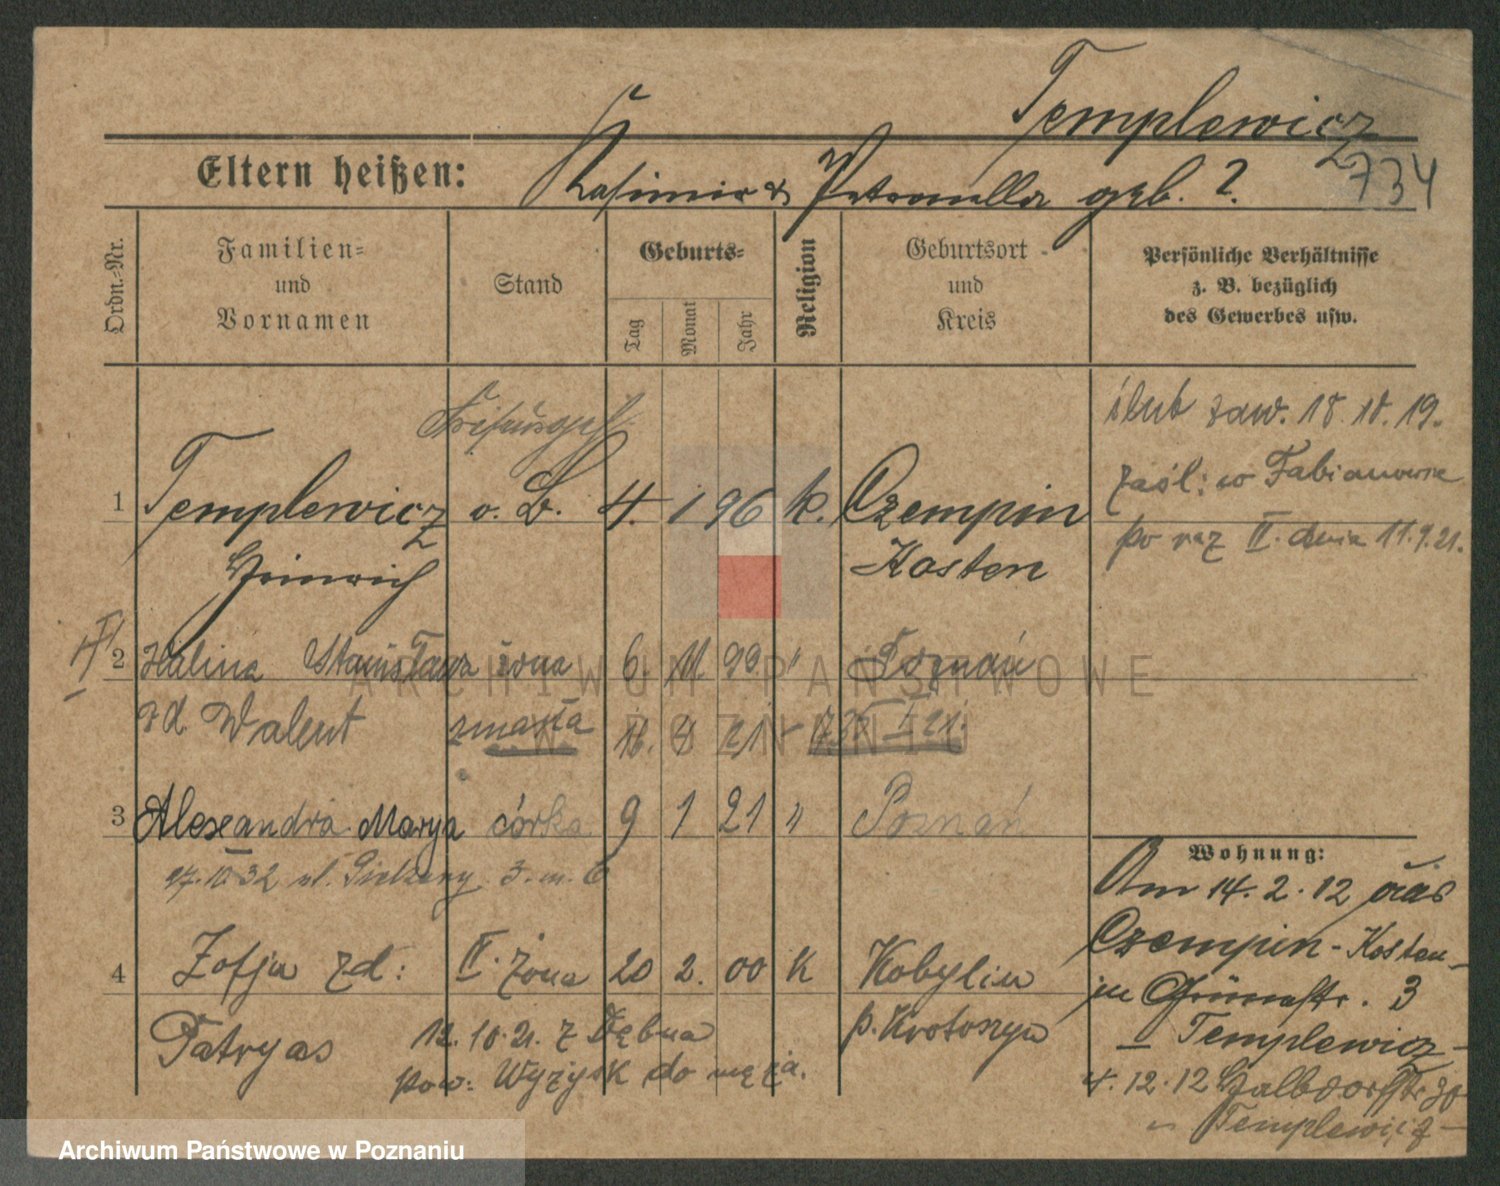 Templewicz
734
Eltern heißen: Kasimir & Petronella geb. ?
Ordn.=Nr.
Familien=
und
Vornamen
Stand
Geburts=
Tag
Monat
Jahr
Religion
Geburtsort
und
Kreis
Persönliche Verhältnisse
z. B. bezüglich
des Gewerbes usw.
ślub zaw. 18.10.19.
zaśl: w Fabianowie
po raz II. dnia 11.9.21.
1 Templewicz o. B. 4. 1 96 k. Czempin
Heinrich Kosten
2 Halina Stanisława żona 6 11. 99. " Poznań
zd Walent zmarła 16. 4 21
3 Alexandra Marya córka 9 1 21 " Poznań
3. m. 6
4 Zofja zd: II. żona 20 2. 00 K Kobylin
Patryas p. Krotoszyn
12.10.21. z Dębna
pow: Wyżysk do męża.
Wohnung:
Am 14.2.12 aus
Czempin - Kosten
in Grünestr. 3
Templewicz
4.12.12 30
" Templewicz
ARCHIWUM PAŃSTWOWE
W POZNANIU
Archiwum Państwowe w Poznaniu